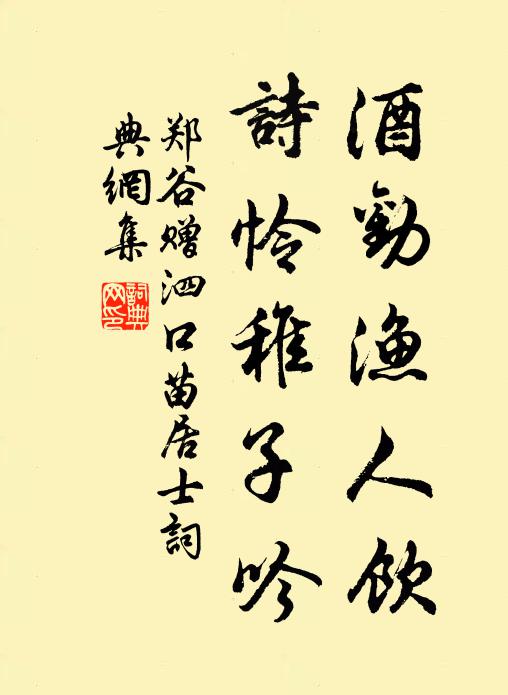 酒勸漁人飲
詩怜稚子吟
郑谷赠泗口苗居士詞
典網集
詞典网印